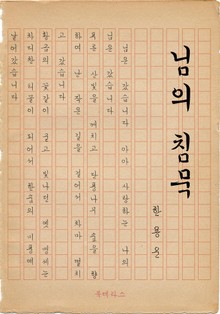 님의 침묵
한용운
님은 갔습니다 아아 사랑하는 나의
님은 갔습니다
푸른 산빛을 깨치고 단풍나무 숲을 향
하여 난 작은 길을 걸어서 차마 떨치
고 갔습니다
황금의 꽃같이 굳고 빛나던 옛 맹세는
차디찬 티끌이 되어서 한숨의 미풍에
날아갔습니다